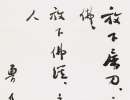 放下屠刀
佛
放下佛经
人
曹